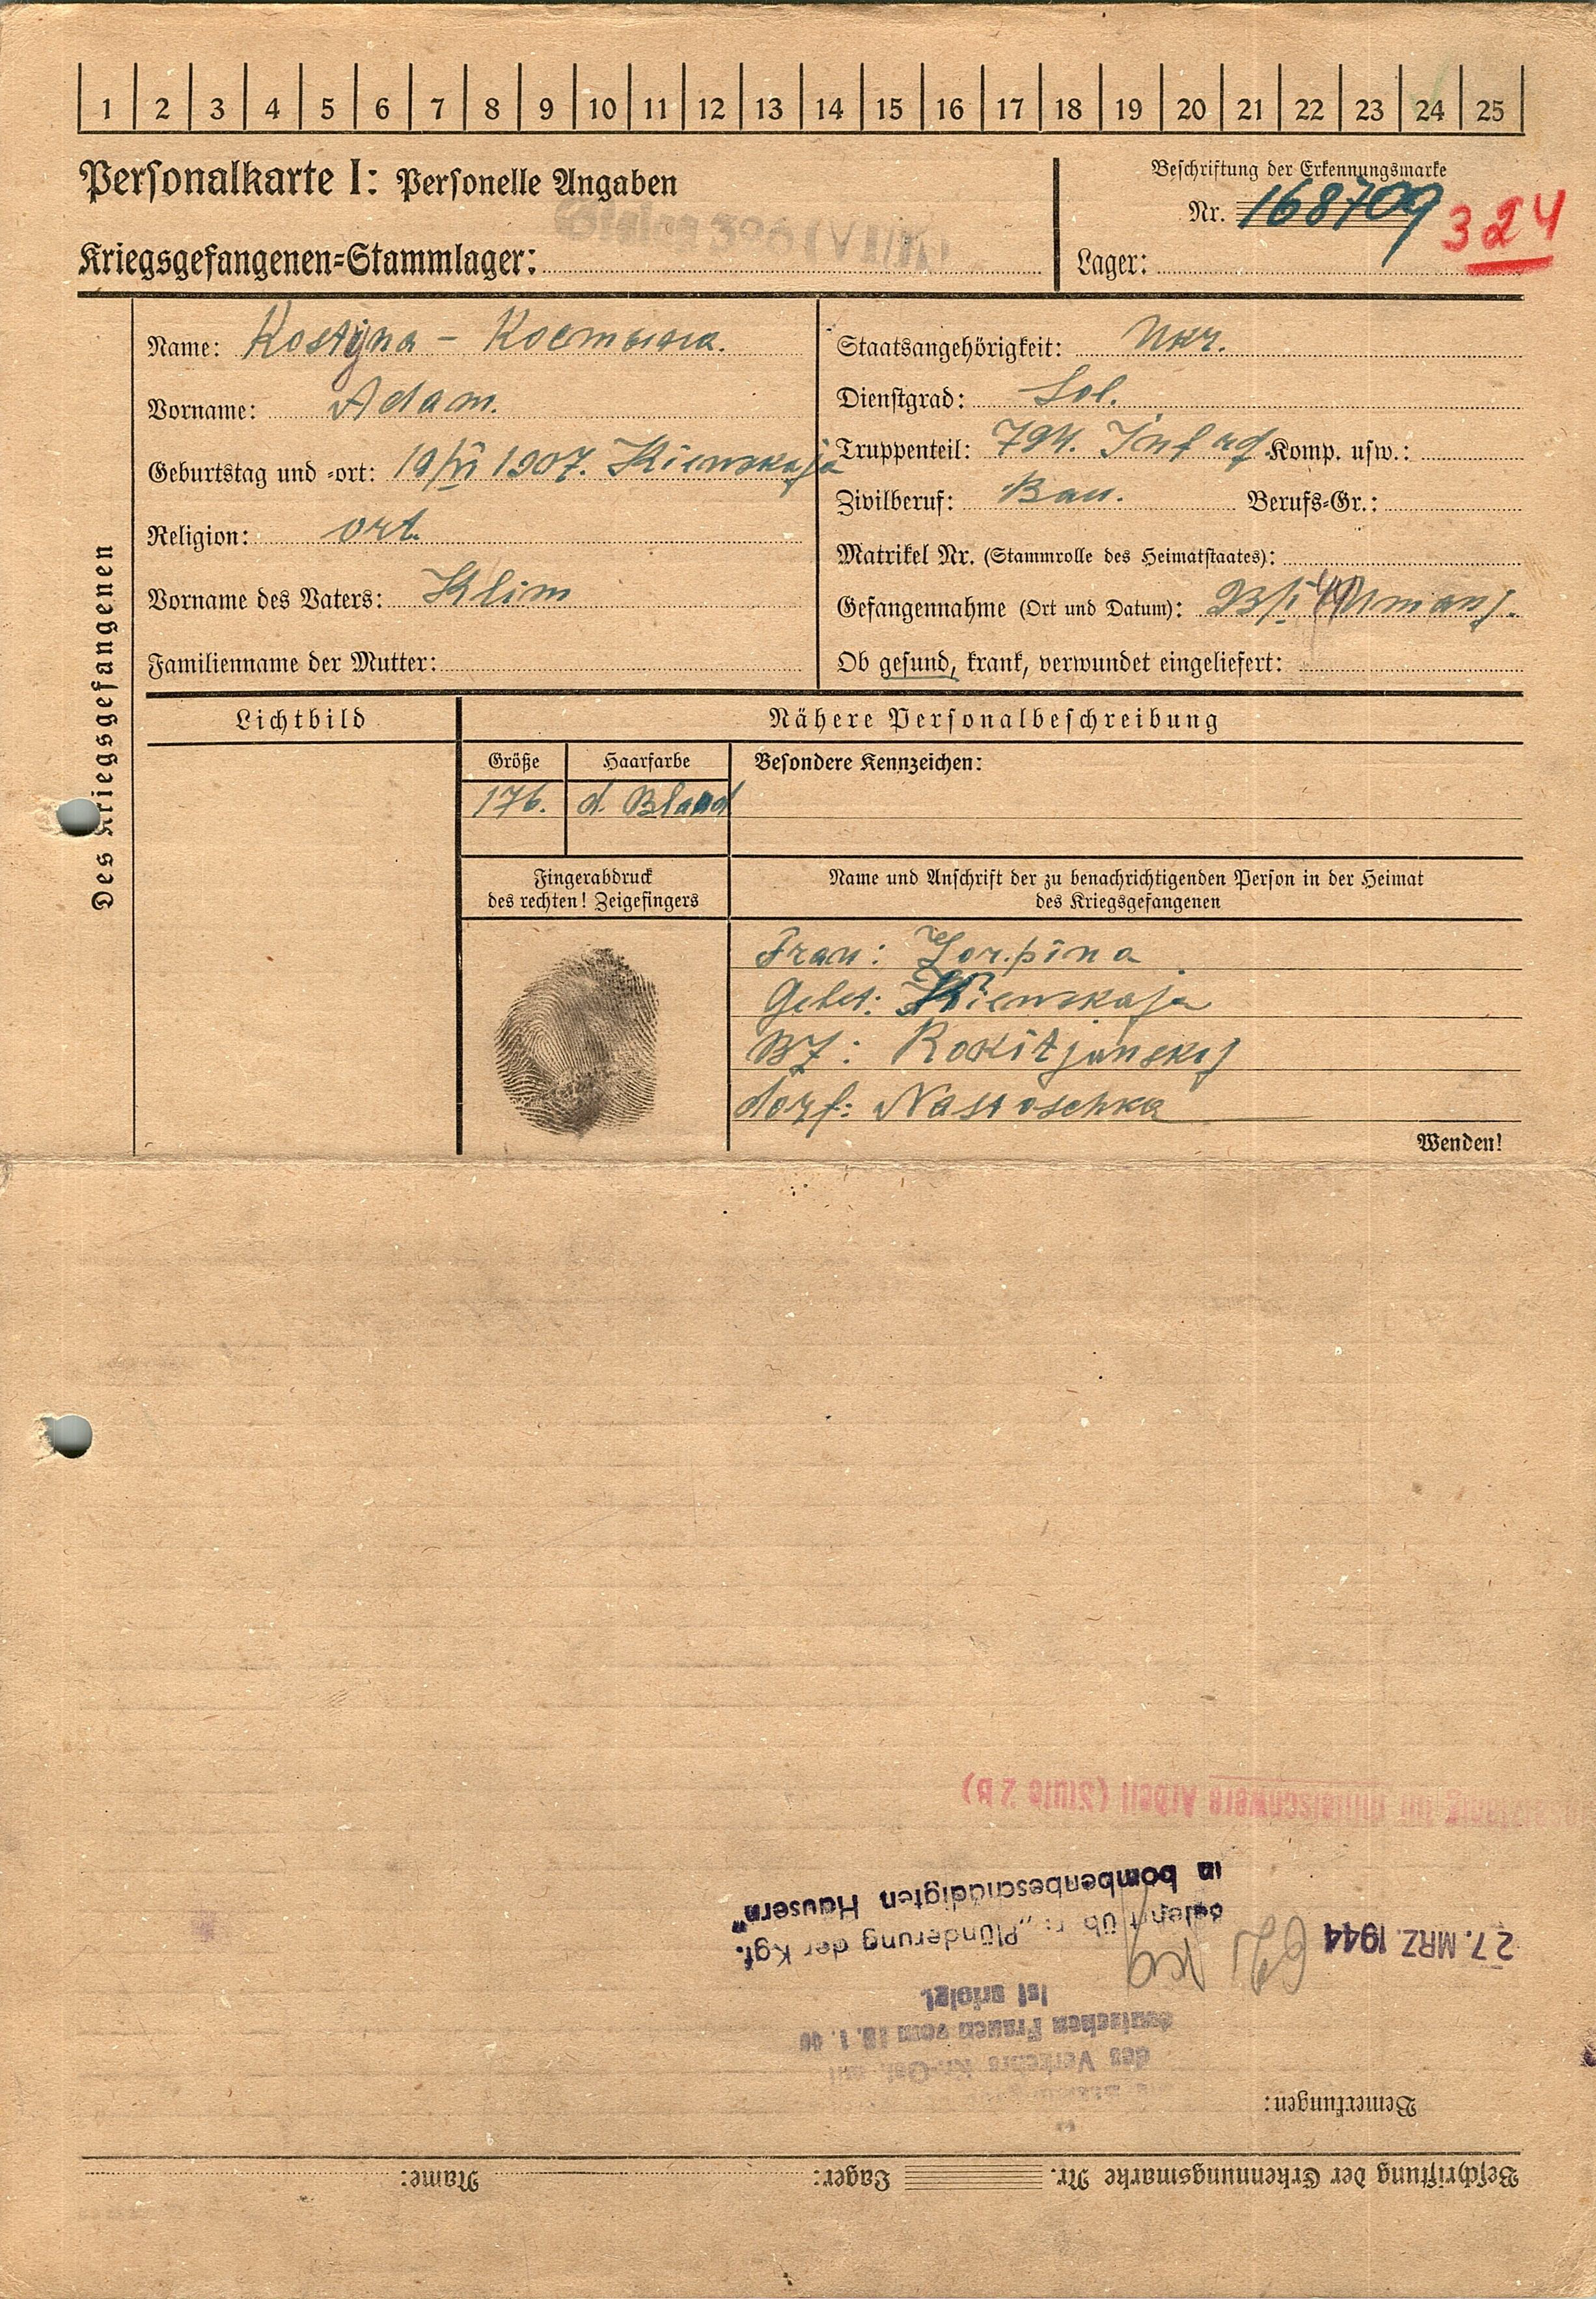 1 2 3 4 5 6 7 8 9 10 11 12 13 14 15 16 17 18 19 20 21 22 23 24 25
Personalkarte I: Personelle Angaben
Beschriftung der Erkennungsmarke
Nr. 168709
324
Kriegsgefangenen=Stammlager:
Lager:
Des Kriegsgefangenen
Name: Kostyna – Костына.
Vorname: Adam.
Geburtstag und =ort: 19/VI 1907. Kiewskaja
Religion: ort.
Vorname des Vaters: Klim
Familienname der Mutter:
Staatsangehörigkeit: Ukr.
Dienstgrad: Sol.
Truppenteil: 794. Inf rg. Komp. usw.:
Zivilberuf: Bau. Berufs=Gr.:
Matrikel Nr. (Stammrolle des Heimatstaates):
Gefangennahme (Ort und Datum): Umanj.
Ob gesund, krank, verwundet eingeliefert:
Lichtbild
Nähere Personalbeschreibung
Größe Haarfarbe Besondere Kennzeichen:
176. d. Bland
Fingerabdruck
des rechten! Zeigefingers
Name und Anschrift der zu benachrichtigenden Person in der Heimat
des Kriegsgefangenen
Frau: Horpina
Gebet: Kiewskaja
Bz: Rokitjanskij
dorf: Nastoschka
Wenden!
Beschriftung der Erkennungsmarke Nr. Lager: Name:
Bemerkungen:
des Verkehrs
deutschen Frauen vom
ist erfolgt
27. MRZ. 1944
"Plünderung der Kgf.
in bombenbeschädigten Häusern"
mittelschwere Arbeit (Stufe 2 B)